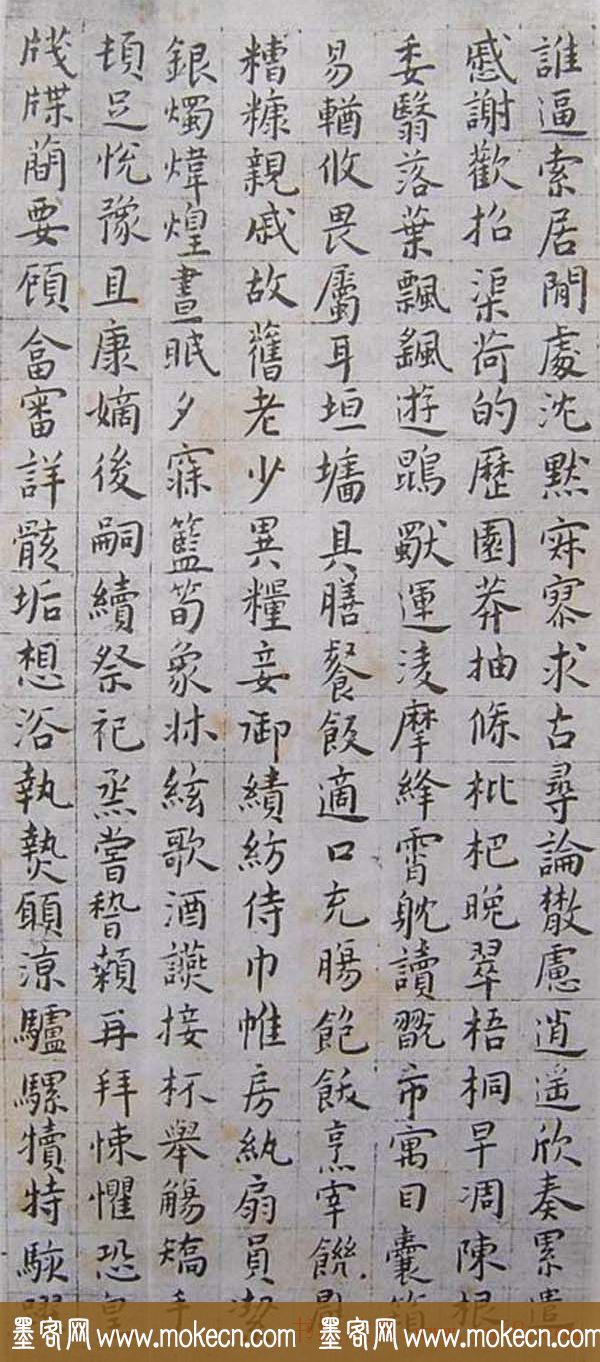 誰逼索居閒處沈默寂寥求古尋論散慮逍遙欣奏累遣
慼謝歡招渠荷的歷園莽抽條枇杷晚翠梧桐早凋陳根
委翳落葉飄颻遊鵾獸運淩摩絳霄耽讀翫市寓目囊箱
易輶攸畏屬耳垣墻具膳餐飯適口充腸飽飫烹宰饑
糟糠親戚故舊老少異糧妾御績紡侍巾帷房紈扇員潔
銀燭煒煌晝眠夕寐籃筍象床絃歌酒讌接杯舉觴矯手
頓足悅豫且康嫡後嗣續祭祀烝嘗稽顙再拜悚懼恐皇
牋牒簡要顧答審詳骸垢想浴執熱願涼驢騾犢特駭
墨客网 www.mokecn.com 墨客网 www.mokecn.com